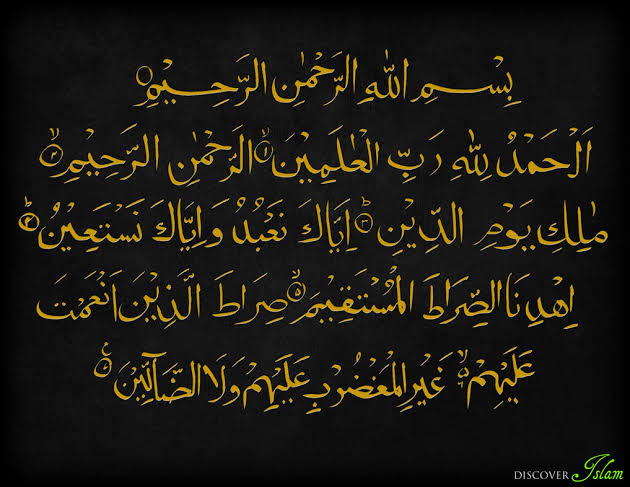 بِسْمِ اللهِ الرَّحْمٰنِ الرَّحِيْمِ ۝
اَلْحَمْدُ لِلّٰهِ رَبِّ الْعٰلَمِيْنَ ۝۱ الرَّحْمٰنِ الرَّحِيْمِ ۝۲
مٰلِكِ يَوْمِ الدِّيْنِ ۝۳ اِيَّاكَ نَعْبُدُ وَاِيَّاكَ نَسْتَعِيْنُ ۝۴
اِهْدِنَا الصِّرَاطَ الْمُسْتَقِيْمَ ۝۵ صِرَاطَ الَّذِيْنَ اَنْعَمْتَ
عَلَيْهِمْ ۝۶ غَيْرِ الْمَغْضُوْبِ عَلَيْهِمْ وَلَا الضَّآلِّيْنَ ۝۷
DISCOVER Islam